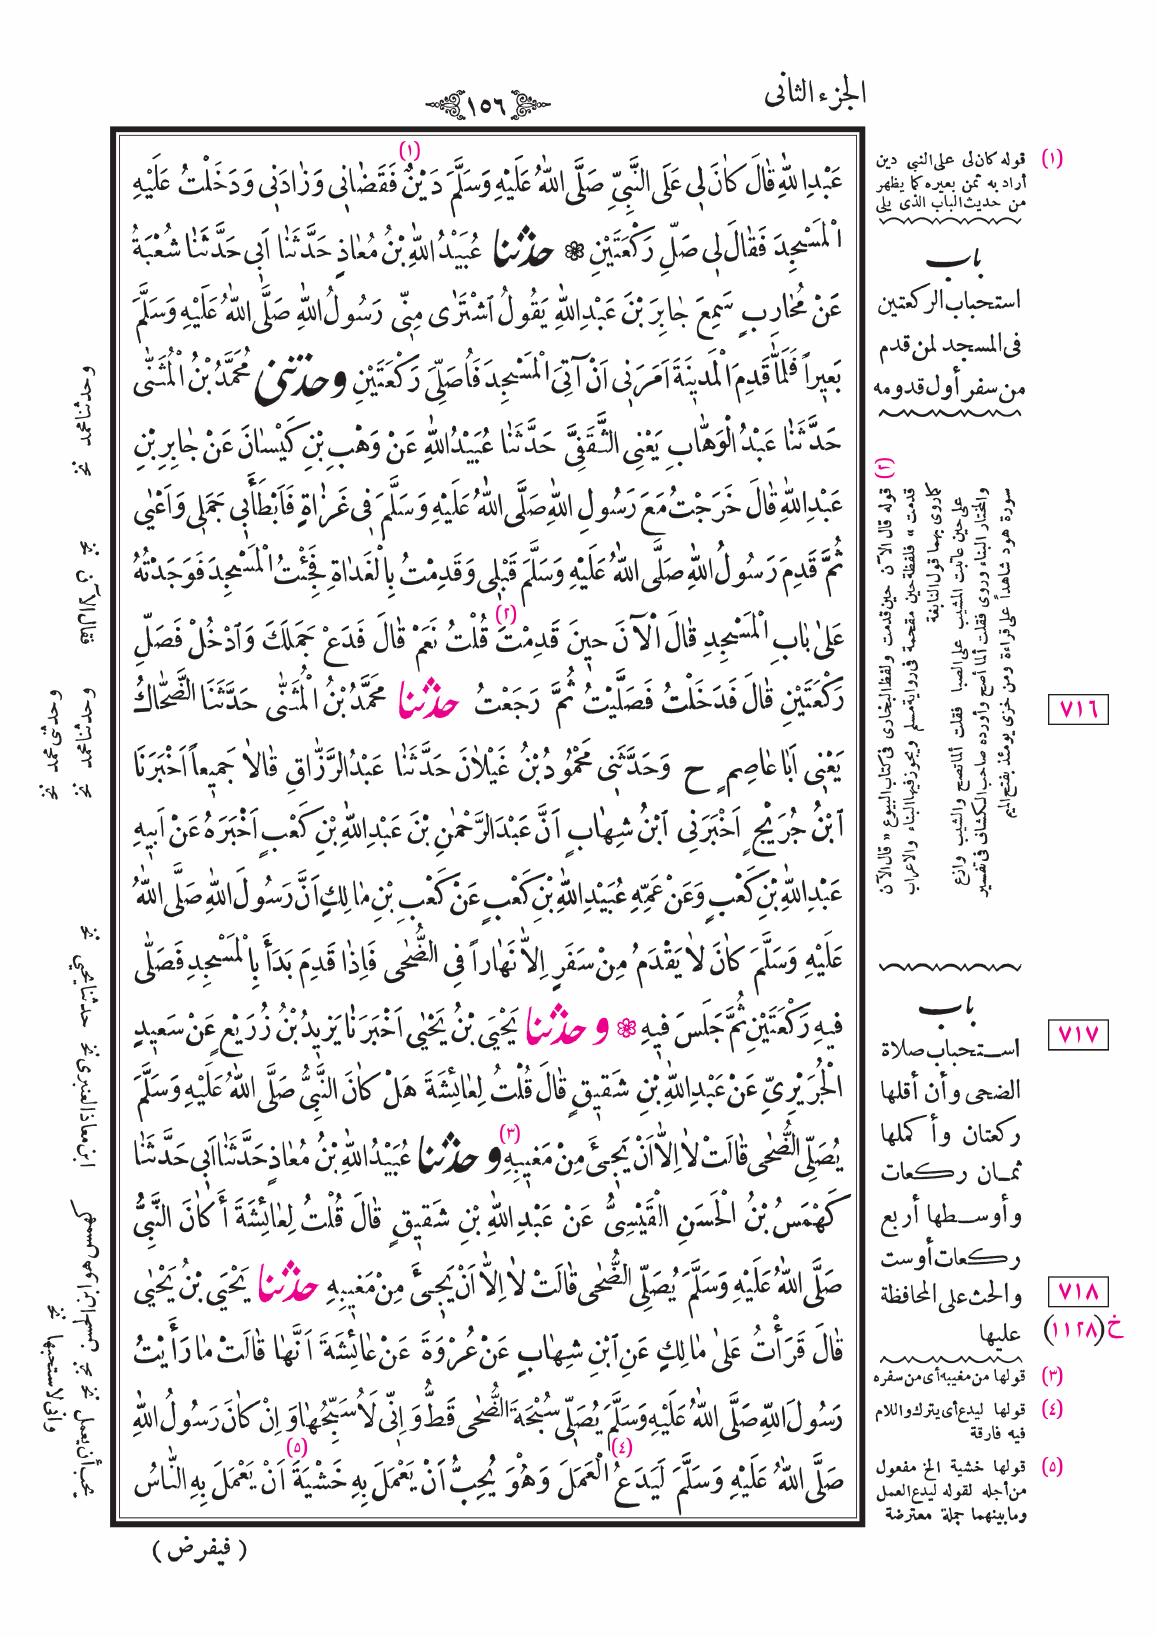 الجزء الثانى
١٥٦
عَبْدِاللّٰهِ قَالَ كَانَ لِى عَلَى النَّبِىِّ صَلَّى اللّٰهُ عَلَيْهِ وَسَلَّمَ دَيْنٌ (١) فَقَضَانِى وَزَادَنِى وَدَخَلْتُ عَلَيْهِ
الْمَسْجِدَ فَقَالَ لِى صَلِّ رَكْعَتَيْنِ ❁ حدثنا عُبَيْدُ اللّٰهِ بْنُ مُعَاذٍ حَدَّثَنَا اَبِى حَدَّثَنَا شُعْبَةُ
عَنْ مُحَارِبٍ سَمِعَ جَابِرَ بْنَ عَبْدِاللّٰهِ يَقُولُ اشْتَرٰى مِنِّى رَسُولُ اللّٰهِ صَلَّى اللّٰهُ عَلَيْهِ وَسَلَّمَ
بَعِيراً فَلَمَّا قَدِمَ الْمَدِينَةَ اَمَرَنِى اَنْ آتِىَ الْمَسْجِدَ فَاُصَلِّىَ رَكْعَتَيْنِ وحدثنى مُحَمَّدُ بْنُ الْمُثَنّٰى
حَدَّثَنَا عَبْدُ الْوَهَّابِ يَعْنِى الثَّقَفِىَّ حَدَّثَنَا عُبَيْدُ اللّٰهِ عَنْ وَهْبِ بْنِ كَيْسَانَ عَنْ جَابِرِ بْنِ
عَبْدِاللّٰهِ قَالَ خَرَجْتُ مَعَ رَسُولِ اللّٰهِ صَلَّى اللّٰهُ عَلَيْهِ وَسَلَّمَ فِى غَزَاةٍ فَاَبْطَأَبِى جَمَلِى وَاَعْيٰى
ثُمَّ قَدِمَ رَسُولُ اللّٰهِ صَلَّى اللّٰهُ عَلَيْهِ وَسَلَّمَ قَبْلِى وَقَدِمْتُ بِالْغَدَاةِ فَجِئْتُ الْمَسْجِدَ فَوَجَدْتُهُ
عَلٰى بَابِ الْمَسْجِدِ قَالَ الْآنَ حِينَ قَدِمْتَ (٢) قُلْتُ نَعَمْ قَالَ فَدَعْ جَمَلَكَ وَادْخُلْ فَصَلِّ
رَكْعَتَيْنِ قَالَ فَدَخَلْتُ فَصَلَّيْتُ ثُمَّ رَجَعْتُ حدثنا مُحَمَّدُ بْنُ الْمُثَنّٰى حَدَّثَنَا الضَّحَّاكُ
يَعْنِى اَبَا عَاصِمٍ ح وَحَدَّثَنِى مَحْمُودُ بْنُ غَيْلَانَ حَدَّثَنَا عَبْدُ الرَّزَّاقِ قَالَا جَمِيعاً اَخْبَرَنَا
ابْنُ جُرَيْجٍ اَخْبَرَنِى ابْنُ شِهَابٍ اَنَّ عَبْدَ الرَّحْمٰنِ بْنَ عَبْدِاللّٰهِ بْنِ كَعْبٍ اَخْبَرَهُ عَنْ اَبِيهِ
عَبْدِاللّٰهِ بْنِ كَعْبٍ وَعَنْ عَمِّهِ عُبَيْدِ اللّٰهِ بْنِ كَعْبٍ عَنْ كَعْبِ بْنِ مَالِكٍ اَنَّ رَسُولَ اللّٰهِ صَلَّى اللّٰهُ
عَلَيْهِ وَسَلَّمَ كَانَ لَا يَقْدَمُ مِنْ سَفَرٍ اِلَّا نَهَاراً فِى الضُّحٰى فَاِذَا قَدِمَ بَدَأَ بِالْمَسْجِدِ فَصَلّٰى
فِيهِ رَكْعَتَيْنِ ثُمَّ جَلَسَ فِيهِ ❁ و حدثنا يَحْيَى بْنُ يَحْيٰى اَخْبَرَنَا يَزِيدُ بْنُ زُرَيْعٍ عَنْ سَعِيدٍ
الْجُرَيْرِىِّ عَنْ عَبْدِاللّٰهِ بْنِ شَقِيقٍ قَالَ قُلْتُ لِعَائِشَةَ هَلْ كَانَ النَّبِىُّ صَلَّى اللّٰهُ عَلَيْهِ وَسَلَّمَ
يُصَلِّى الضُّحٰى قَالَتْ لَا اِلَّا اَنْ يَجِىءَ مِنْ مَغِيبِهِ (٣) و حدثنا عُبَيْدُ اللّٰهِ بْنُ مُعَاذٍ حَدَّثَنَا اَبِى حَدَّثَنَا
كَهْمَسُ بْنُ الْحَسَنِ الْقَيْسِىُّ عَنْ عَبْدِاللّٰهِ بْنِ شَقِيقٍ قَالَ قُلْتُ لِعَائِشَةَ أَكَانَ النَّبِىُّ
صَلَّى اللّٰهُ عَلَيْهِ وَسَلَّمَ يُصَلِّى الضُّحٰى قَالَتْ لَا اِلَّا اَنْ يَجِىءَ مِنْ مَغِيبِهِ حدثنا يَحْيَى بْنُ يَحْيٰى
قَالَ قَرَأْتُ عَلٰى مَالِكٍ عَنِ ابْنِ شِهَابٍ عَنْ عُرْوَةَ عَنْ عَائِشَةَ اَنَّهَا قَالَتْ مَا رَأَيْتُ
رَسُولَ اللّٰهِ صَلَّى اللّٰهُ عَلَيْهِ وَسَلَّمَ يُصَلِّى سُبْحَةَ الضُّحٰى قَطُّ وَ اِنِّى لَاُسَبِّحُهَا وَ اِنْ كَانَ رَسُولُ اللّٰهِ
صَلَّى اللّٰهُ عَلَيْهِ وَسَلَّمَ لَيَدَعُ (٤) الْعَمَلَ وَهُوَ يُحِبُّ اَنْ يَعْمَلَ بِهِ خَشْيَةَ (٥) اَنْ يَعْمَلَ بِهِ النَّاسُ
( فيفرض )
(١) قوله كان لى على النبى دين
أراد به ثمن بعيره كما يظهر
من حديث الباب الذى يلى
باب
استحباب الركعتين
فى المسجد لمن قدم
من سفر أول قدومه
(٢) قوله قال الآن حين قدمت ولفظ البخارى فى كتاب البيوع « قال الآن
قدمت » فلفظة حين مقحمة فى رواية مسلم ويجوز فيها البناء والاعراب
كما روى بهما قول النابغة
على حين عاتبت المشيب على الصبا فقلت ألما تصح والشيب وازع
والمختار البناء وروى فقلت ألما أصح وأورده صاحب الكشاف فى تفسير
سورة هود شاهداً على قراءة ومن خزى يومئذ بفتح الميم
٧١٦
باب
استحباب صلاة
الضحى وأن أقلها
ركعتان وأكملها
ثمان ركعات
وأوسطها أربع
ركعات أو ست
والحث على المحافظة
عليها
٧١٧
٧١٨
خ (١١٢٨)
(٣) قولها من مغيبه أى من سفره
(٤) قولها ليدع أى يترك واللام
فيه فارقة
(٥) قولها خشية الخ مفعول
من أجله لقوله ليدع العمل
وما بينهما جملة معترضة
وحدثنا محمد نخ
فقال الآن نخ
وحدثنا محمد نخ
وحدثنى محمد نخ
حدثنا يحيى نخ
ابن معاذ العنبرى نخ
كهمس هو ابن الحسن نخ
يحب أن يعمل نخ
وانى لاستحبها نخ